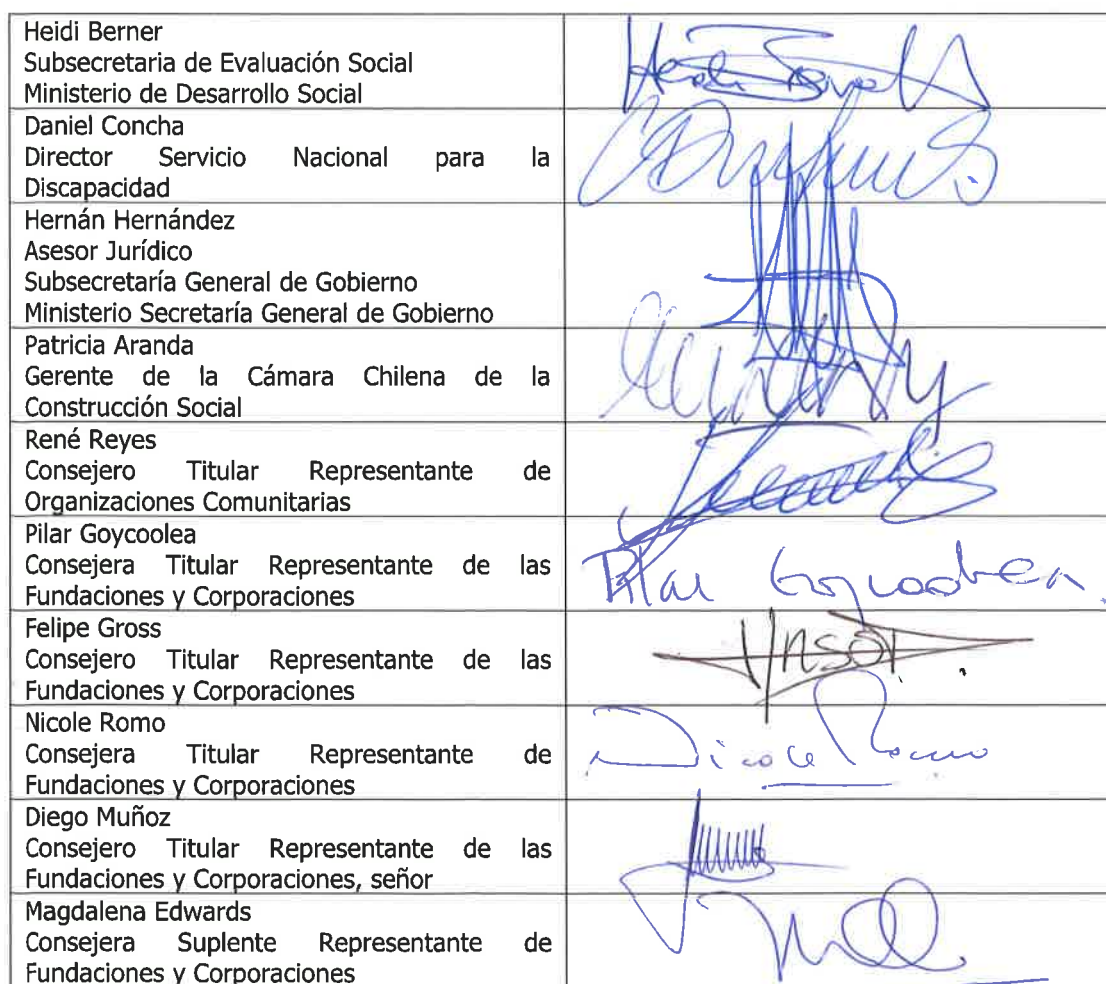 Heidi Berner
Subsecretaria de Evaluación Social
Ministerio de Desarrollo Social
Daniel Concha
Director Servicio Nacional para la
Discapacidad
Hernán Hernández
Asesor Jurídico
Subsecretaría General de Gobierno
Ministerio Secretaría General de Gobierno
Patricia Aranda
Gerente de la Cámara Chilena de la
Construcción Social
René Reyes
Consejero Titular Representante de
Organizaciones Comunitarias
Pilar Goycoolea
Consejera Titular Representante de las
Fundaciones y Corporaciones
Pilar Goycoolea
Felipe Gross
Consejero Titular Representante de las
Fundaciones y Corporaciones
Nicole Romo
Consejera Titular Representante de
Fundaciones y Corporaciones
Nicole Romo
Diego Muñoz
Consejero Titular Representante de las
Fundaciones y Corporaciones, señor
Magdalena Edwards
Consejera Suplente Representante de
Fundaciones y Corporaciones